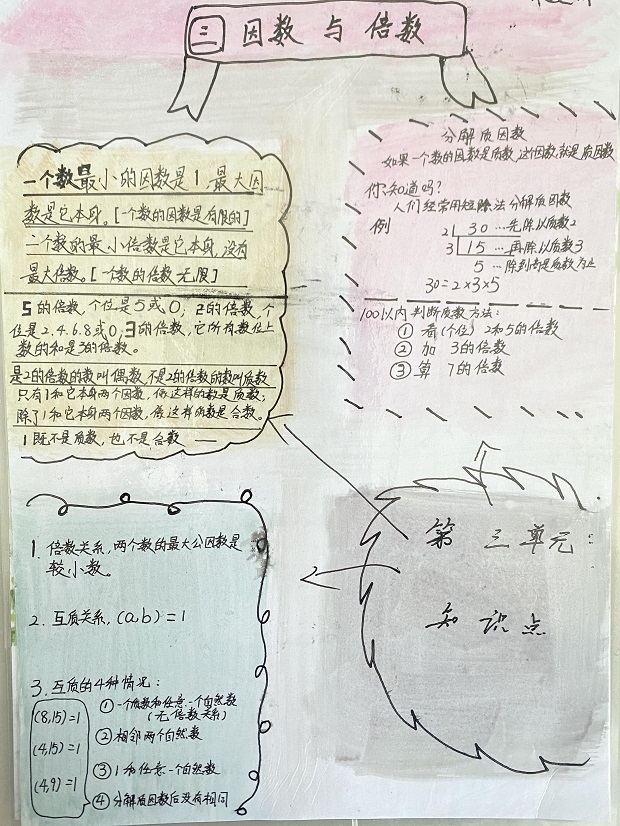 三 因数 与 倍数
一个数最小的因数是1，最大因
数是它本身。[一个数的因数是有限的]
一个数的最小倍数是它本身，没有
最大倍数。[一个数的倍数无限]
5的倍数，个位是5或0，2的倍数，个
位是2.4.6.8或0，3的倍数，它所有数位上
数的和是3的倍数。
是2的倍数的数叫偶数，不是2的倍数的数叫质数
只有1和它本身两个因数，像这样的数是质数；
除了1和它本身两个因数，像这样的数是合数。
1既不是质数，也不是合数 —
分解质因数
如果一个数的因数是质数，这个因数就是质因数
你知道吗？
人们经常用短除法分解质因数
例
2 30 …先除以质数2
3 15 …再除以质数3
5 …除到商是质数为止
30=2×3×5
100以内判断质数方法：
① 看(个位) 2和5的倍数
② 加 3的倍数
③ 算 7的倍数
第三单元：
知识点
1. 倍数关系，两个数的最大公因数是
较小数。
2. 互质关系，(a,b)=1
3. 互质的4种情况：
(8,15)=1
(4,15)=1
(4,9)=1
① 一个质数和任意一个自然数
(无倍数关系)
② 相邻两个自然数
③ 1和任意一个自然数
④ 分解质因数后没有相同